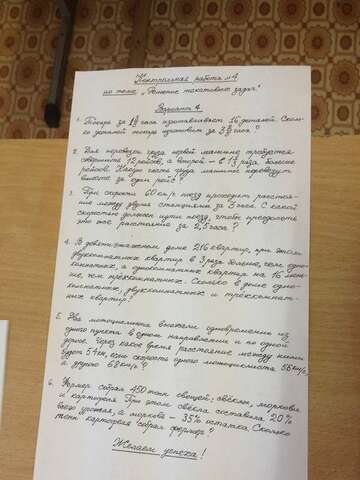 Контрольная работа №4
по теме „Решение текстовых задач"
Вариант 4.
1. Токарь за часа изготавливает 16 деталей. Сколь-
ко деталей токарь изготовит за часа?
2. Для перевозки груза первой машине требуется
совершить 12 рейсов, а второй – в раза больше
рейсов. Какую часть груза машины перевезут
вместе за один рейс?
3. При скорости 60 км/ч поезд проходит расстоя-
ние между двумя станциями за 3 часа. С какой
скоростью должен идти поезд, чтобы преодолеть
это же расстояние за 2,5 часа?
4. В девятиэтажном доме 216 квартир, при этом
двухкомнатных квартир в 3 раза больше, чем одно-
комнатных, а однокомнатных квартир на 16 мень-
ше, чем трехкомнатных. Сколько в доме одно-
комнатных, двухкомнатных и трехкомнат-
ных квартир?
5. Два мотоциклиста выехали одновременно из
одного пункта в одном направлении и по одной
дороге. Через какое время расстояние между ними
будет 54 км, если скорость одного мотоциклиста 56 км/ч,
а другого 68 км/ч?
6. Фермер собрал 450 тонн овощей: свёклы, моркови
и картофеля. При этом свёкла составила 20%
всего урожая, а морковь – 35% остатка. Сколько
тонн картофеля собрал фермер?
Желаем успеха!